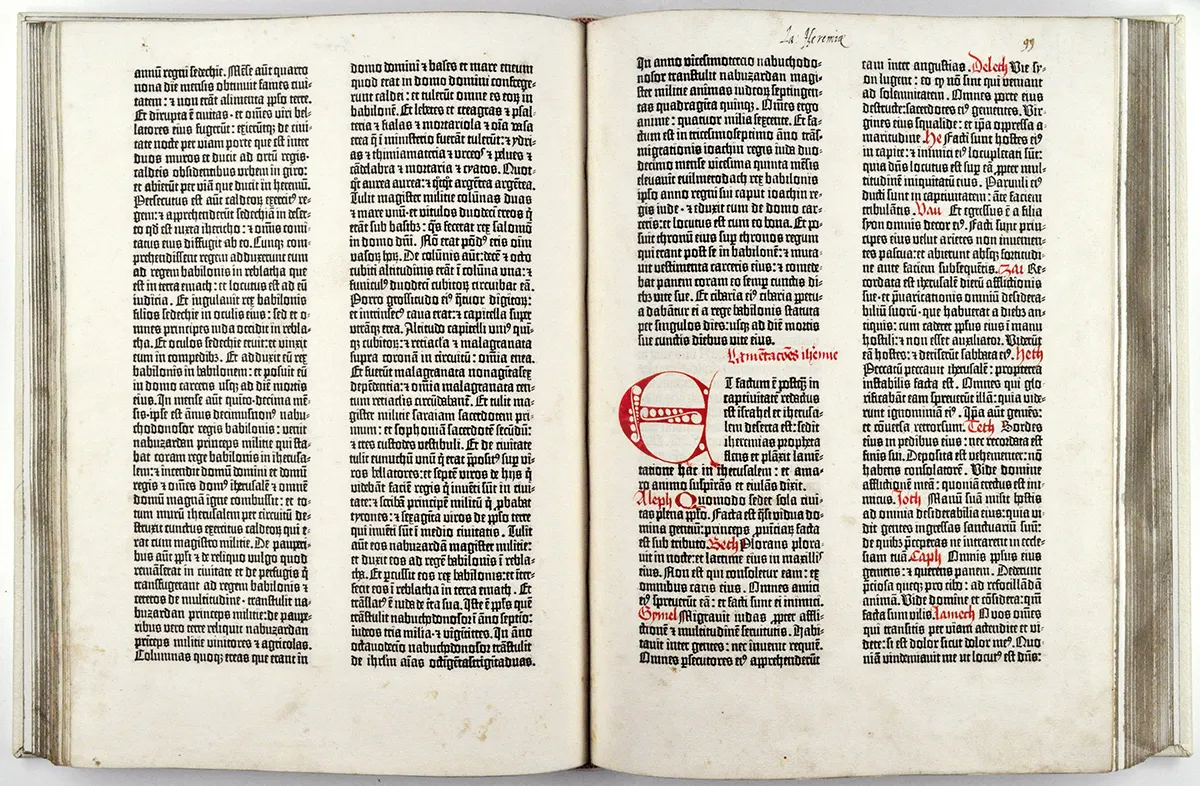 annũ regni sedechie. Mẽse aũt quarto
nona die mensis obtinuit fames civi-
tatem: ⁊ non erãt alimenta ppl'o terre.
Et dirupta ẽ civitas · et om̃es viri bel-
latores eius fugerũt: exierũtq; de civi-
tate nocte per viam porte que est inter
duos muros et ducit ad ortũ regis ·
caldeis obsidentibus urbem in giro:
et abierũt per viã que ducit in heremũ.
Persecutus est aũt caldeoꝝ exercit9 re-
gem: ⁊ apprehenderũt sedechiã in deser-
to qđ est iuxta iherico: ⁊ om̃is comi-
tatus eius diffugit ab eo. Cumq; com-
prehendissent regem adduxerunt eum
ad regem babilonis in reblatha que
est in terra emath: et locutus est ad eũ
iudicia. Et iugulavit rex babilonis
filios sedechie in oculis eius: sed et o-
mnes principes iuda occidit in rebla-
tha. Et oculos sedechie eruit: et vinxit
eum in compedib9. Et adduxit eũ rex
babilonis in babilonem: et posuit eũ
in domo carceris usq; ad diẽ mortis
eius. In mense aũt quĩto: decima mẽ-
sis · ipse est ãnus decimusnon9 nabu-
chodonosor regis babilonis: venit
nabuzardan princeps militie qui sta-
bat coram rege babilonis in iherusa-
lem: ⁊ incendit domũ domini et domũ
regis ⁊ om̃es dom9 iherusalẽ ⁊ omnẽ
domũ magnã igne combussit: et to-
tum murũ iherusalem per circuitũ de-
struxit cunctus exercitus caldeoꝝ qui e-
rat cum magistro militie. De pauperi-
bus aũt ppl'i ⁊ de reliquo vulgo quod
remãserat in civitate et de perfugis q̃
transfugerant ad regem babilonis ⁊
ceteros de multitudine · transtulit na-
buzardan princeps militie: de paupe-
ribus vero terre reliquit nabuzardan
princeps militie vinitores ⁊ agricolas.
Columnas quoq; ereas que erant in
domo domini ⁊ bases et mare eneum
quod erat in domo domini confrege-
runt caldei: et tulerũt omne es eoꝝ in
babilonẽ. Et lebetes et creagras ⁊ psal-
teria ⁊ fialas ⁊ mortariola ⁊ oĩa vasa
erea q̃ ĩ ministerio fuerãt tulerũt: ⁊ ydri-
as ⁊ thimiamateria ⁊ urceos ⁊ pelues ⁊
cãdelabra ⁊ mortaria ⁊ cyatos. Quot-
q̃t aurea aurea: ⁊ q̃tq̃t argẽtea argẽtea.
Tulit magister militie colũnas duas
⁊ mare unũ · et vitulos duodecĩ ereos q̃
erãt sub basib9: q̃s fecerat rex salomõ
in domo dñi. Nõ erat põd9 eris om̃ĩ
vasoꝝ hoꝝ. De colũnis aũt: decẽ ⁊ octo
cubiti altitudinis erãt ĩ colũna una: ⁊
funicul9 duodecĩ cubitoꝝ circuibat eã.
Porro grossitudo ei9 q̃tuor digitoꝝ:
et intrinsec9 cava erat: ⁊ capitella super
utrãq; erea. Altitudo capitelli uni9 quĩ-
q; cubitoꝝ: ⁊ retiacla ⁊ malagranata
supra coronã in circuitu: omnia erea.
Et fuerũt malagranata nonagĩtasex
depẽdentia: ⁊ omĩa malagranata cen-
tum retiaclis circũdabant. Et tulit ma-
gister militie saraiam sacerdotem pri-
mum: et sophoniam sacerdotẽ secũdũ:
⁊ tres custodes vestibuli. Et de civitate
tulit eunuchũ unũ q̃ erat p̃posit9 sup viros
ros bellatores: et septẽ viros de hijs q̃
videbãt faciẽ regis q̃ invẽti sũt in civi-
tate: ⁊ scribã principẽ militũ q̃ ꝓbabat
tyrones: ⁊ sexagĩta viros de ppl'o terre
qui invẽti sũt ĩ medio civitatis. Tulit
aũt eos nabuzardã magister militie:
et duxit eos ad regẽ babilonis ĩ rebla-
tha. Et percussit eos rex babilonis: et iter-
fecit eos ĩ reblatha in terra emath. Et
trãslat9 ẽ iuda de terra sua. Iste ẽ ppl's quẽ
trãstulit nabuchodonosor: ĩ ãno septĩo:
iudeos tria milia · ⁊ vigĩtitres. In ãno
octavodecĩo nabuchodonosor trãstulit
de ihrl'm aĩas octĩgẽtastrigĩtaduas.
La Jeremiæ
99
In anno vicesimotercio nabuchodo-
nosor transtulit nabuzardan magi-
ster militie animas iudeoꝝ septingen-
tas quadragĩta quinq;. Om̃es ergo
anime: quatuor milia sexcente. Et fa-
ctum est in tricesimoseptimo ãno trãs-
migrationis ioachin regis iuda duo-
decimo mense vicesima quinta mẽsis
elevavit evilmerodach rex babilonis
ipso anno regni sui caput ioachin re-
gis iude · ⁊ eduxit eum de domo car-
ceris: et locutus est cum eo bona. Et po-
suit thronũ eius super thronos regum
qui erant post se in babilonẽ: ⁊ muta-
vit vestimenta carceris eius: ⁊ comede-
bat panem coram eo semper cunctis di-
eb9 vite sue. Et cibaria ei9 cibaria ꝓpetu-
a dabãtur ei a rege babilonis statuta
per singulos dies: usq; ad diẽ mortis
sue cunctis diebus vite eius.
Lamẽtacões iheremie
Et factum ẽ postq̃ in
captivitatẽ redactus
est israhel et iherusa-
lem deserta est: sedit
iheremias propheta
flens et plãxit lamẽ-
tatione hãc in iherusalem: et ama-
ro animo suspirãs et eiulãs dixit.
Aleph Quomodo sedet sola civi-
tas plena ppl'o. Facta est q̃si vidua do-
mina gentiũ: princeps ꝓvinciaꝝ facta
est sub tributo. Beth Plorans plora-
vit in nocte: et lacrime eius in maxill'
eius. Non est qui consoletur eam: ex
omnibus caris eius. Omnes amici
ei9 spreverũt eã: et facti sunt ei inimici.
Gymel Migravit iudas ꝓpter affli-
ctionẽ ⁊ multitudinẽ servitutis. Habi-
tavit inter gentes: nec invenit requiẽ.
Omnes ꝑsecutores ei9 apprehenderũt
eam inter angustias. Deleth Vie sy-
on lugent: eo q̃ nõ sint qui veniant
ad solennitatem. Omnes porte eius
destructe: sacerdotes ei9 gementes. Vir-
gines eius squalide: et ip̃a oppressa a-
maritudine. He Facti sunt hostes ei9
in capite: ⁊ inimici ei9 locupletati sũt:
quia dñs locutus est sup eã ꝓpter mul-
titudinẽ iniquitatũ eius. Parvuli ei9
ducti sunt in captivitatem: ãte faciem
tribulãtis. Vau Et egressus ẽ a filia
syon omnis decor ei9. Facti sunt prin-
cipes eius velut arietes non invenien-
tes pascua: et abierunt absq; fortitudi-
ne ante faciem subsequẽtis. Zai Re-
cordata est iherusalẽ dierũ afflictionis
sue · et p̃varicationis omniũ desidera-
biliũ suoꝝ · que habuerat a dieb9 an-
tiquis: cum caderet ppl's eius ĩ manu
hostili: ⁊ non esset auxiliator. Viderũt
eã hostes: ⁊ deriserũt sabbata ei9. Heth
Peccatũ peccavit iherusalẽ: propterea
instabilis facta est. Omnes qui glo-
rificabãt eam spreverũt illã: quia vide-
runt ignominiã ei9. Ip̃a aũt gemẽs:
et cõversa retrorsum. Teth Sordes
eius in pedibus eius: nec recordata est
finis sui. Deposita est vehementer: nõ
habens consolatorẽ. Vide domine
afflictionẽ meã: quoniã erectus est ini-
micus. Joth Manũ suã misit hostis
ad omnia desiderabilia eius: quia vi-
dit gentes ingressas sanctuariũ suũ:
de quib9 p̃ceperas ne intrarent in eccle-
siam tuã. Caph Omnis ppl'us eius
gemens: ⁊ querens panem. Dederunt
preciosa queq; pro cibo: ad refocillãdã
animã. Vide domine et cõsidera: q̃m
facta sum vilis. Lamech O vos om̃es
qui transitis per viam attendite et vi-
dete: si est dolor sicut dolor me9. Quo-
niã vindemiavit me ut locut9 est dñs: